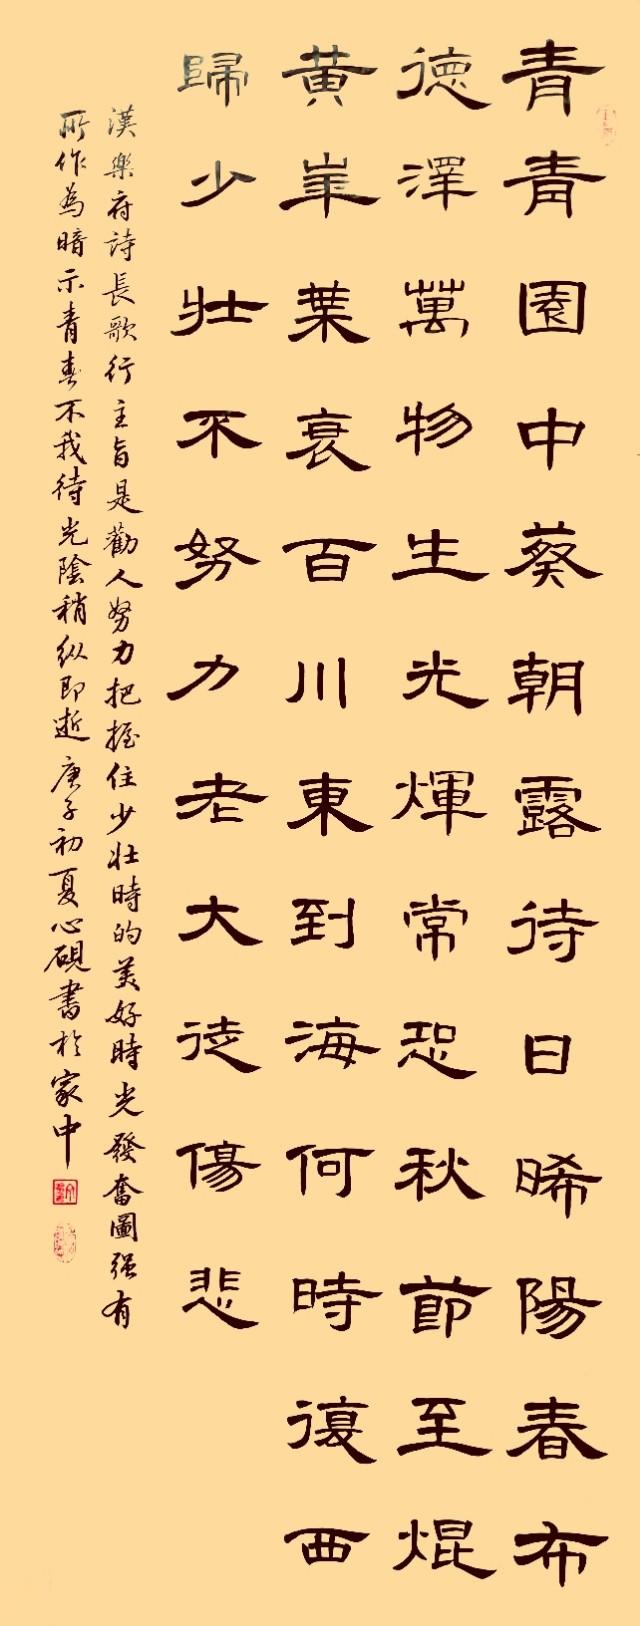 青青園中葵朝露待日晞陽春布
德澤萬物生光煇常恐秋節至焜
黄崋葉衰百川東到海何時復西
歸少壮不努力老大徒傷悲
漢樂府詩長歌行主旨是勸人努力把握住少壮時的美好時光發奮圖强有
所作為暗示青春不我待光陰稍纵即逝庚子初夏心硯書於家中